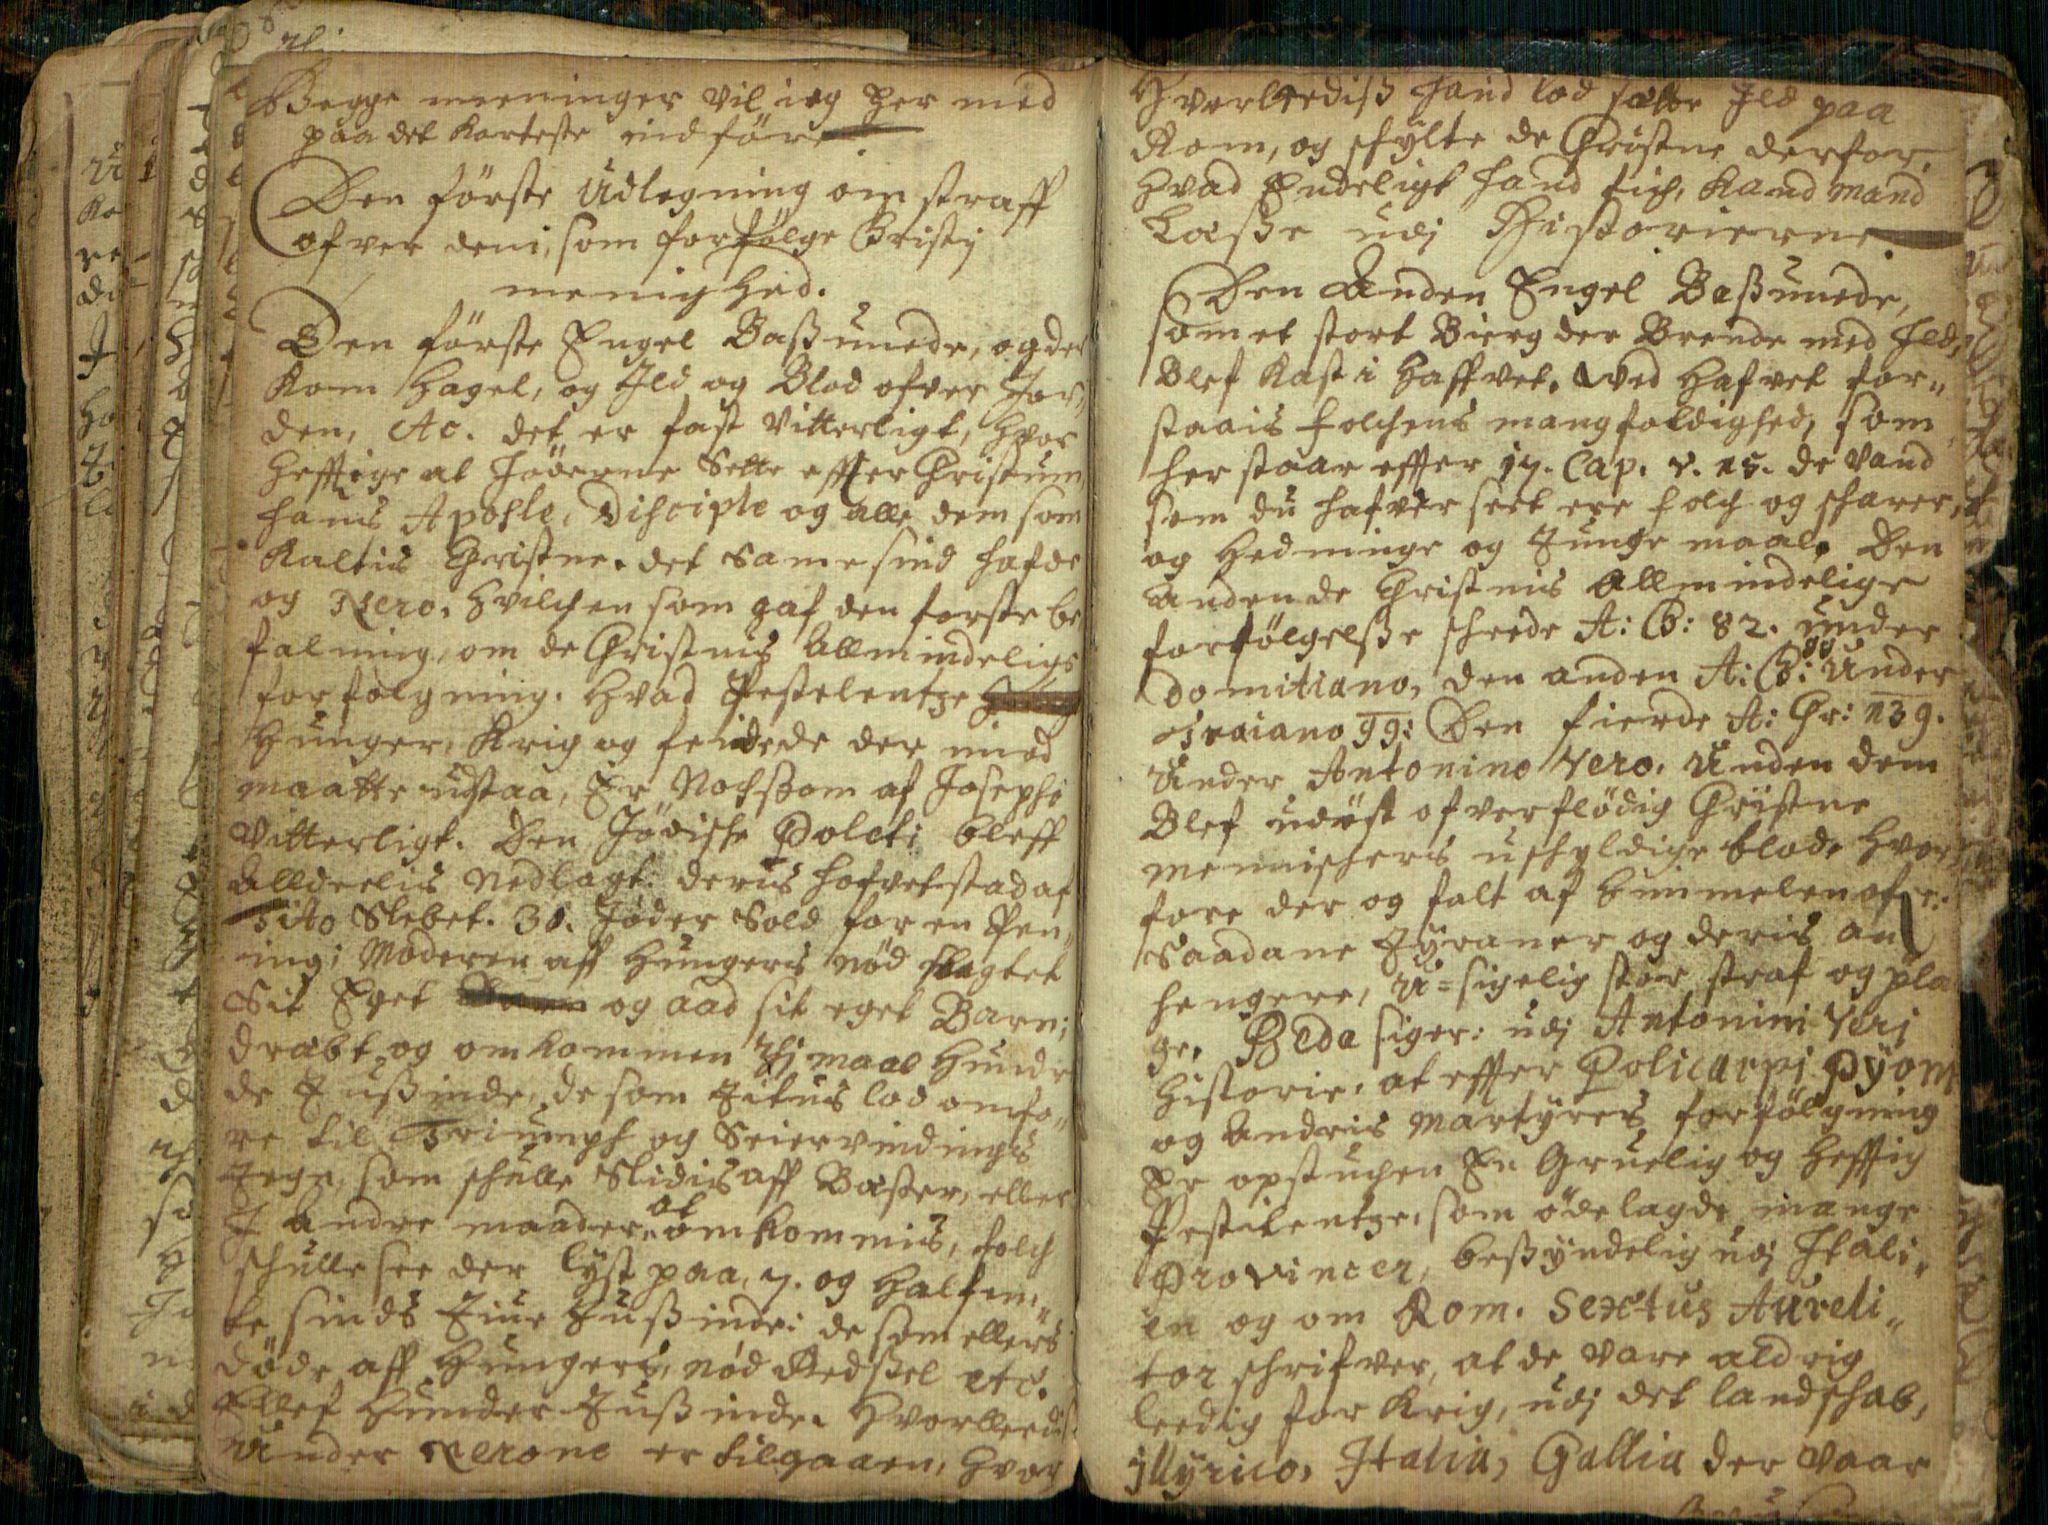 Begge meeninger vil ieg her med
paa det korteste indföre
Den förste Udlegning om straff
ofver dem, som forfölge Christj
menighed.
Den förste Engel Bassunede, og der
kom Hagel, og Ild og Blod ofver Jor„
den, &c. det er fast vitterligt, hvor
hefftige at Jøderne sette effter Christum
hans Apostle, Disciple og alle dem som
kaltis Christne. det samme sind hafde
og Nero, hvilchen som gaf den første be
falning, om de Christnis Allmindelige
forfølgning. hvad Pestelentze
Hunger, Krig og feidede der imod
maatte udstaa, Er nochssom af Josepho
vitterligt. Den Jödische Poleti bleff
alldeelis nedlagt. deris hofvetstad af
Tito Slebet. 30. Jøder sold for en Pen„
ning; Moderen aff Hungers nöd slagtet
Sit Eget og aad sit eget Barn;
dræbt og omkommen xj maal hundre
de Tussinde, de som Titus lod omfø„
re til Triumph og Seiervindings
Tegn, som schulle slidis aff Bæster, eller
I andre maader at omkommis, folch
schulle see der lyst paa, 7. og halfem„
te sinds Tiue Tussinde: de som ellers
döde aff Hungers, nöd Redssel etc.
Ellef Hunder Tussinde. Hvorlleedis
Under Nerone er tilgaaen, hvor
Hvorleediss hand lod sætte Ild paa
Rom, og schylte de Christne derfor,
hvad Endeligt hand fich, kand mand
Læsse udj Historierne.
Den Anden Engel Bassunede,
som et stort Bierg der Brende med Ild,
Blef kast i Haffvet. ved Hafvet for„
staais folchens mangfoldighed, som
her staar effter 17. Cap. v. 15. de vand
som du hafver seet ere folch og scharer,
og Hedninge og Tungemaal. Den
anden de Christnis Allmindelige
forfölgelsse scheede A: C: 82. under
Domitiano, den anden A: C: og Under
Traiano 99: Den fierde A: Chr: 139.
Under Antonino Vero. Unden dem
Blef udöst ofverflödig Christne
mennischers uschyldige blod, hvor
fore der og falt af himmelen ofr.
Saadane Tyraner og deris an
hengere, U=sigelig stor straf og pla
ge. Beda siger: udj Antonini Verj
historie, at effter Policarpj Pyonj
og andris Martyrers forfölgning
Er opstuchen En Gruelig og hefftig
Pestilentze, som ödelagde mange
Provincer, bessynderlig udj Itali„
en og om Rom. Sextus Aureli„
tor schrifver, at de vare aldrig
leedig for Krig, udj det landschab,
jllyrico, Italia, Gallia der vaar